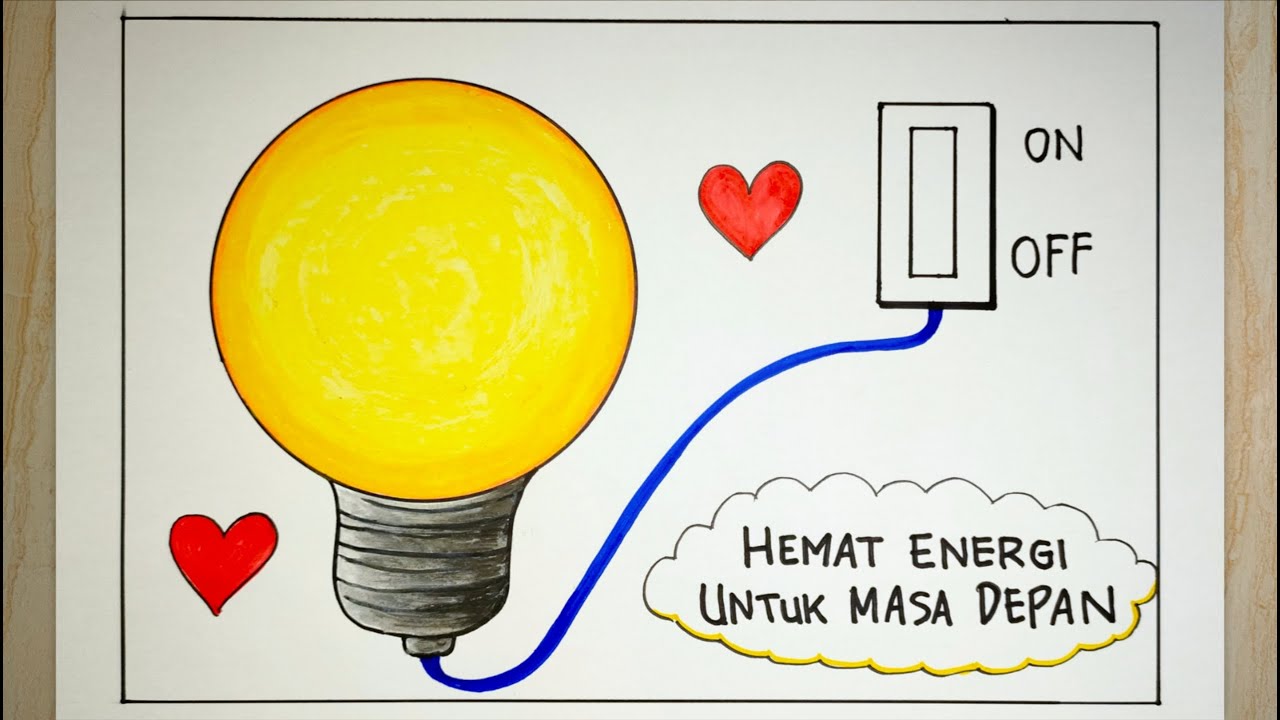 ON
OFF
HEMAT ENERGI
UNTUK MASA DEPAN